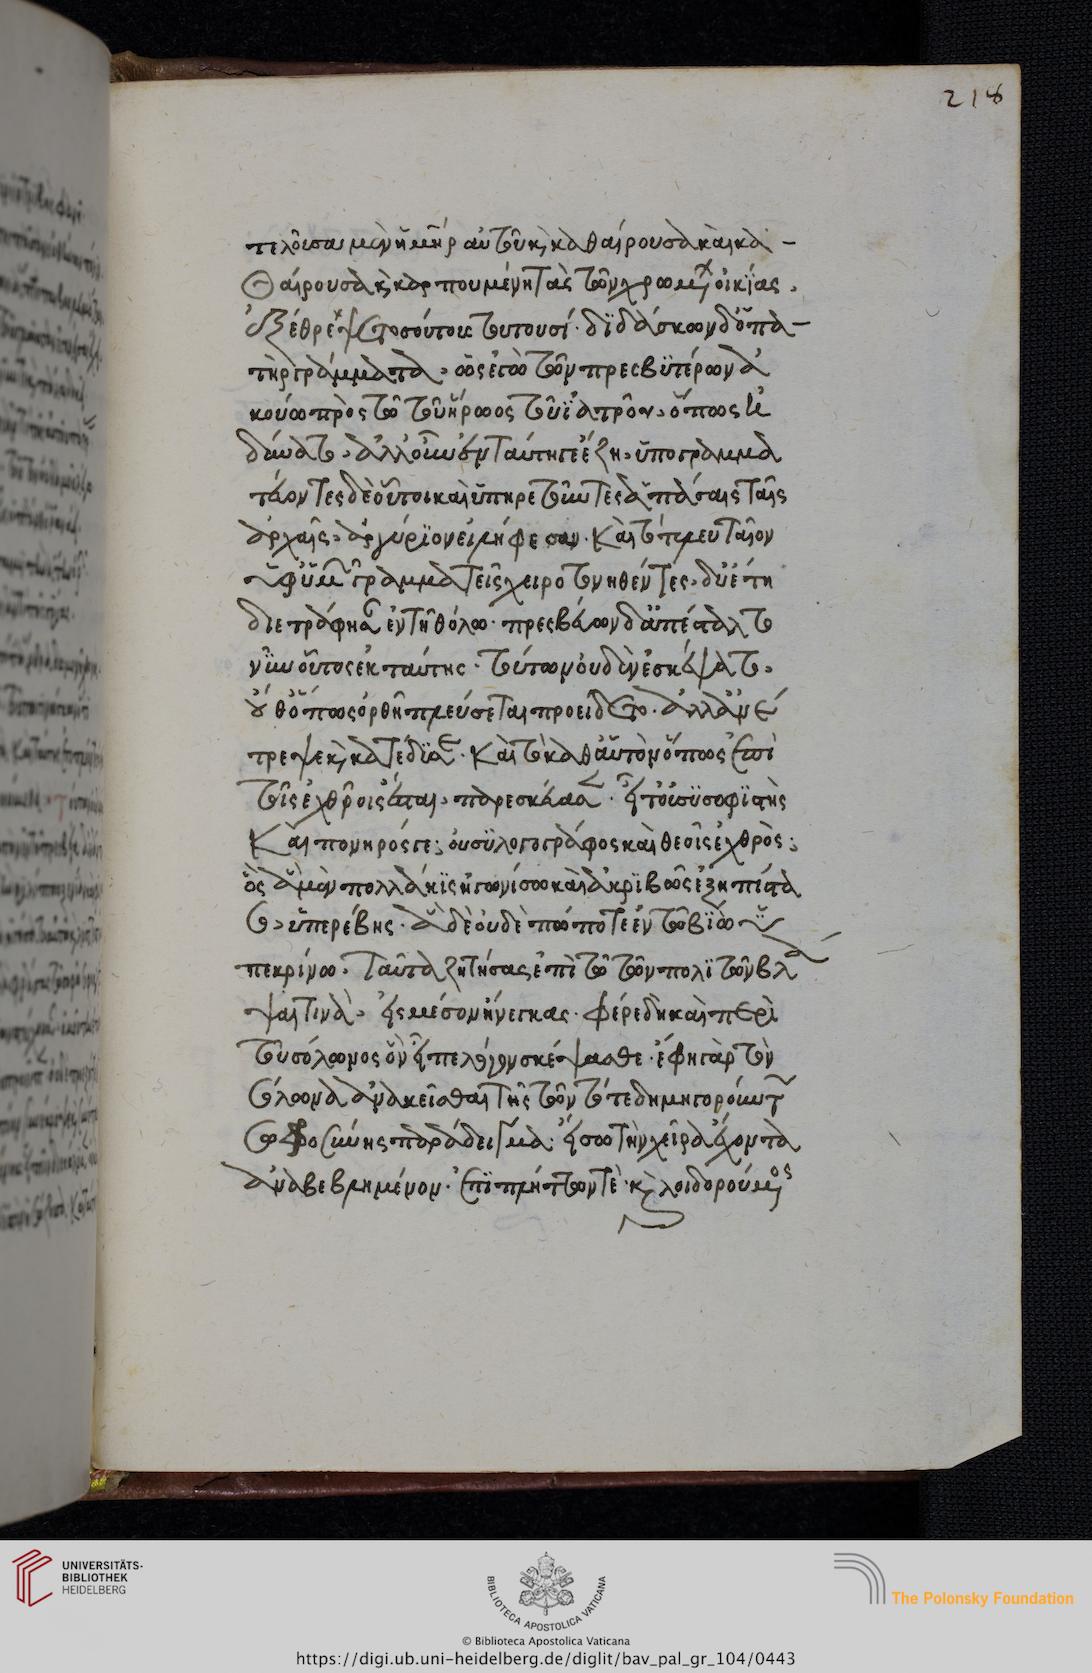 218
τελοῦσα μὲν ἡ μῆρ αὐτοῦ κ, καθαίρουσα καὶ κα-
θαίρουσα κ, καρπουμένη τὰς τῶν χρωμ(έν) οἰκίας.
ἐξέθρεψε τοσούτους τουτουσί. διδάσκων δ' ὁ πα-
τὴρ γράμματα. ὡς ἐγὼ τῶν πρεσβυτέρων ἀ
κούω πρὸς τῷ τοῦ ἥρωος τοῦ ἰατροῦ. ὅπως ἐ
δύνατο. ἀλλ' οὖν ἐν ταύτῃ γε ἔζη. ὑπογραμμα
τέοντες δὲ οὗτοι καὶ ὑπηρετοῦντες ἁπάσαις ταῖς
ἀρχαῖς. ἀργύριον εἰλήφεσαν. Καὶ τὸ τελευταῖον
ὑφ' ὑμῶν γραμματεῖς χειροτονηθέντες. δύ' ἔτη
διετράφησ(αν) ἐν τῇ θόλῳ. πρεσβεύων δ' ἀπέσταλτο
νῦν οὗτος ἐκ ταύτης. τούτων οὐδὲν ἐσκέψατο.
οὐδ' ὅπως ὀρθὴ πλεύσεται προείδετο. ἀλλ' ἀνέ
τρεψε κ, κατέδυσε. Καὶ τὸ καθ' αὑτὸν ὅπως ἐπὶ
τοῖς ἐχθροῖς ἔσται. παρεσκεύασ(εν). εἶτ' οὐ σὺ σοφιστὴς
Καὶ πονηρός γε; οὐ σὺ λογογράφος καὶ θεοῖς ἐχθρὸς;
ὃς ἃ μὲν πολλάκις ἠγωνίσω καὶ ἀκριβῶς ἐξηπίστα
σο. ὑπερέβης. ἃ δὲ οὐδὲ πώποτε ἐν τῷ βίῳ ὑ
πεκρίνω. ταῦτα ζητήσας ἐπὶ τῷ τῶν πολιτῶν βλά
ψαι τινὰ. εἰς μέσον ἤνεγκας. φέρε δὴ καὶ περὶ
τοῦ σόλωνος ὃν εἶπε λόγον σκέψασθε. ἔφη γὰρ τὸν
σόλωνα ἀνακεῖσθαι τῆς τῶν τότε δημηγορούντ(ων)
σωφροσύνης παράδειγμα. εἴσω τὴν χεῖρα ἔχοντα
ἀναβεβλημένον. ἐπιπλήττων τὲ. κ, λοιδορούμ(εν)ος
UNIVERSITÄTS-
BIBLIOTHEK
HEIDELBERG
BIBLIOTECA APOSTOLICA VATICANA
The Polonsky Foundation
© Biblioteca Apostolica Vaticana
https://digi.ub.uni-heidelberg.de/diglit/bav_pal_gr_104/0443